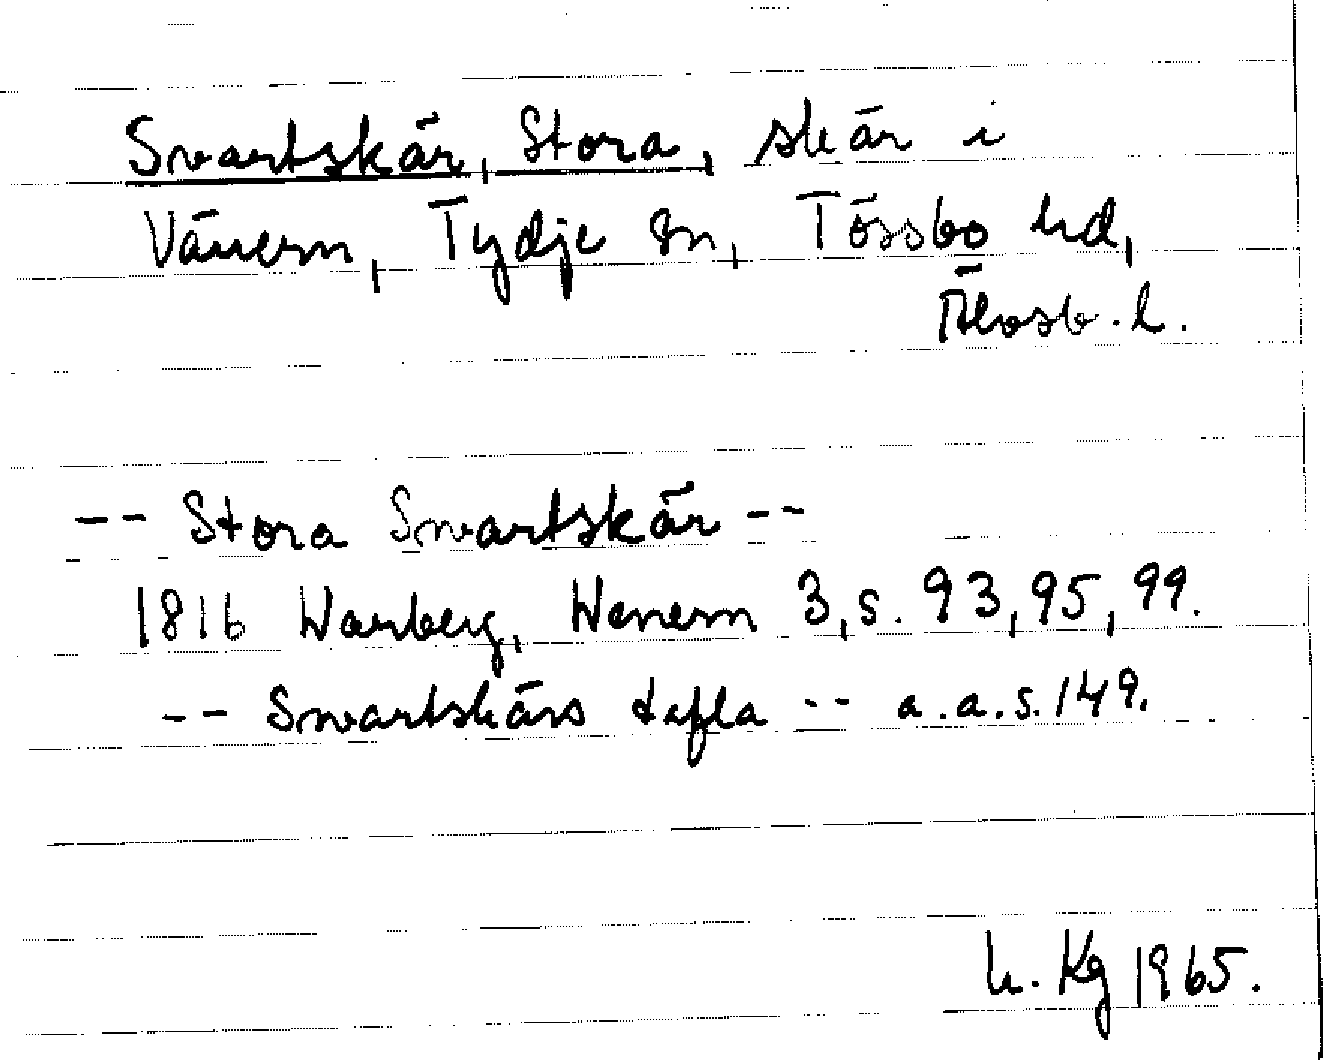 Svartskär, Stora, skär i
Vänern, Tydje sn, Tössbo hd,
Älvsb. l.
-- Stora Svartskär --
1816 Warberg, Wenern 3, s. 93, 95, 99.
-- Svartskärs tafla -- a.a.s. 149.
h. Kg 1965.